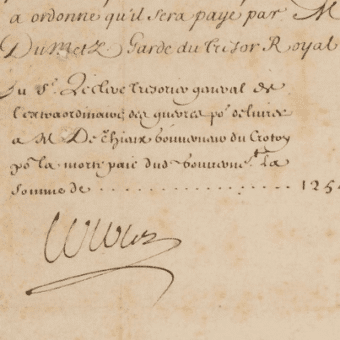 a ordonné qu'il sera payé par M
Du Metz Garde du Trésor Royal
Au Sr. Leclive tresorier general de
l'extraordinaire des guerres pr. delivrer
a M De thieux Gouverneur du Crotoy
pr. la morte paie dud. Gouvernet. La
somme de .................... 125